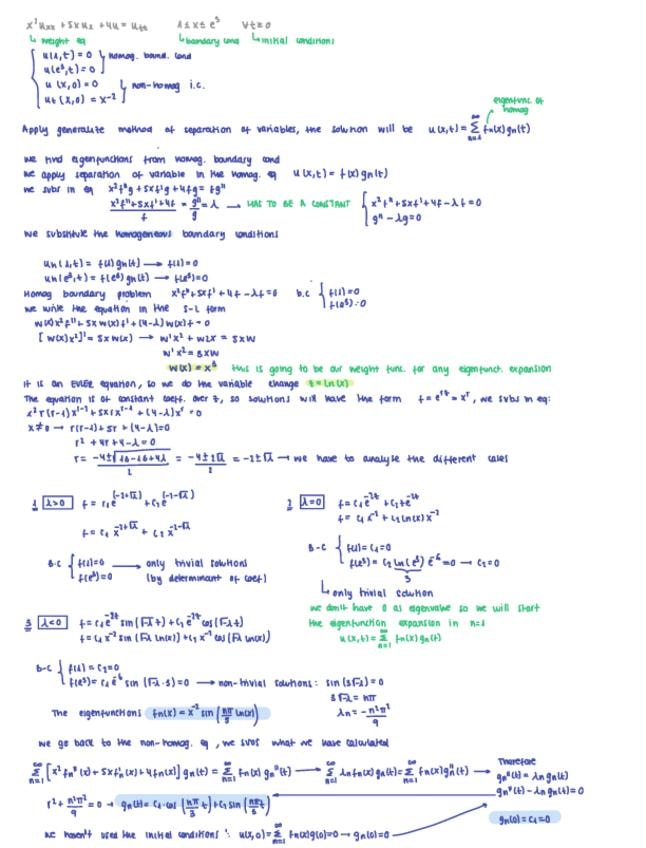 x²uxx + 5xux + 4u = utt   1≤x≤e³   ∀t≥0
↳ weight eq   ↳ boundary cond   ↳ initial conditions
u(1,t) = 0 } homog. bound. cond
u(e³,t) = 0
u(x,0) = 0 } non-homog i.c.
ut(x,0) = x⁻²
eigenfunc. of homog
Apply generalize method of separation of variables, the solution will be u(x,t) = ∑ fn(x) gn(t)
we find eigenfunctions from homog. boundary cond
we apply separation of variable in the homog. eq u(x,t) = f(x) g(t)
we subs in eq x²f''g + 5xf'g + 4fg = fg''
(x²f'' + 5xf' + 4f)/f = g''/g = λ → HAS TO BE A CONSTANT { x²f'' + 5xf' + 4f - λf = 0
g'' - λg = 0
we substitute the homogeneous boundary conditions
un(1,t) = f(1) gn(t) → f(1) = 0
un(e³,t) = f(e³) gn(t) → f(e³) = 0
Homog boundary problem x²f'' + 5xf' + 4f - λf = 0 b.c { f(1) = 0
f(e³) = 0
we write the equation in the S-L form
w(x)x²f'' + 5xw(x)f' + (4-λ)w(x)f = 0
[w(x)x²]' = 5xw(x) → w'x² + w2x = 5xw
w'x² = 3xw
w(x) = x³ this is going to be our weight func. for any eigenfunct. expansion
it is an EULER equation, so we do the variable change t = ln(x)
The equation is of constant coeff. over t, so solutions will have the form f = e^rt = x^r, we subs in eq:
x²r(r-1)x^r-2 + 5xrx^r-1 + (4-λ)x^r = 0
x≠0 → r(r-1) + 5r + (4-λ) = 0
r² + 4r + 4 - λ = 0
r = (-4±√(16-16+4λ))/2 = (-4±2√λ)/2 = -2±√λ → we have to analyse the different cases
1 λ>0 f = c₁e^(-2+√λ)t + c₂e^(-2-√λ)t
f = c₁x^-2+√λ + c₂x^-2-√λ
B.C { f(1) = 0 → only trivial solutions
f(e³) = 0 (by determinant of coef)
2 λ=0 f = c₁e^-2t + c₂te^-2t
f = c₁x⁻² + c₂ln(x)x⁻²
B-C { f(1) = c₁ = 0
f(e³) = c₂ ln(e³) e⁻⁶ = 0 → c₂ = 0
3
↳ only trivial solution
we don't have 0 as eigenvalue so we will start
the eigenfunction expansion in n=1
u(x,t) = ∑ fn(x) gn(t)
3 λ<0 f = c₁e^-2t sin(√-λ t) + c₂e^-2t cos(√-λ t)
f = c₁x⁻² sin(√-λ ln(x)) + c₂x⁻² cos(√-λ ln(x))
b-c { f(1) = c₂ = 0
f(e³) = c₁e⁻⁶ sin(√-λ·3) = 0 → non-trivial solutions: sin(3√-λ) = 0
3√-λ = nπ
λn = -n²π²/9
The eigenfunctions fn(x) = x⁻² sin(nπ/3 ln(x))
we go back to the non-homog. eq, we subs what we have calculated
∑ [x²fn''(x) + 5xfn'(x) + 4fn(x)] gn(t) = ∑ fn(x) gn''(t) → ∑ λn fn(x) gn(t) = ∑ fn(x) gn''(t) →
Therefore
gn''(t) = λn gn(t)
gn''(t) - λn gn(t) = 0
r² + n²π²/9 = 0 → gn(t) = c₁·cos(nπ/3 t) + c₂ sin(nπ/3 t)
gn(0) = c₁ = 0
we haven't used the initial conditions: u(x,0) = ∑ fn(x) g(0) = 0 → gn(0) = 0